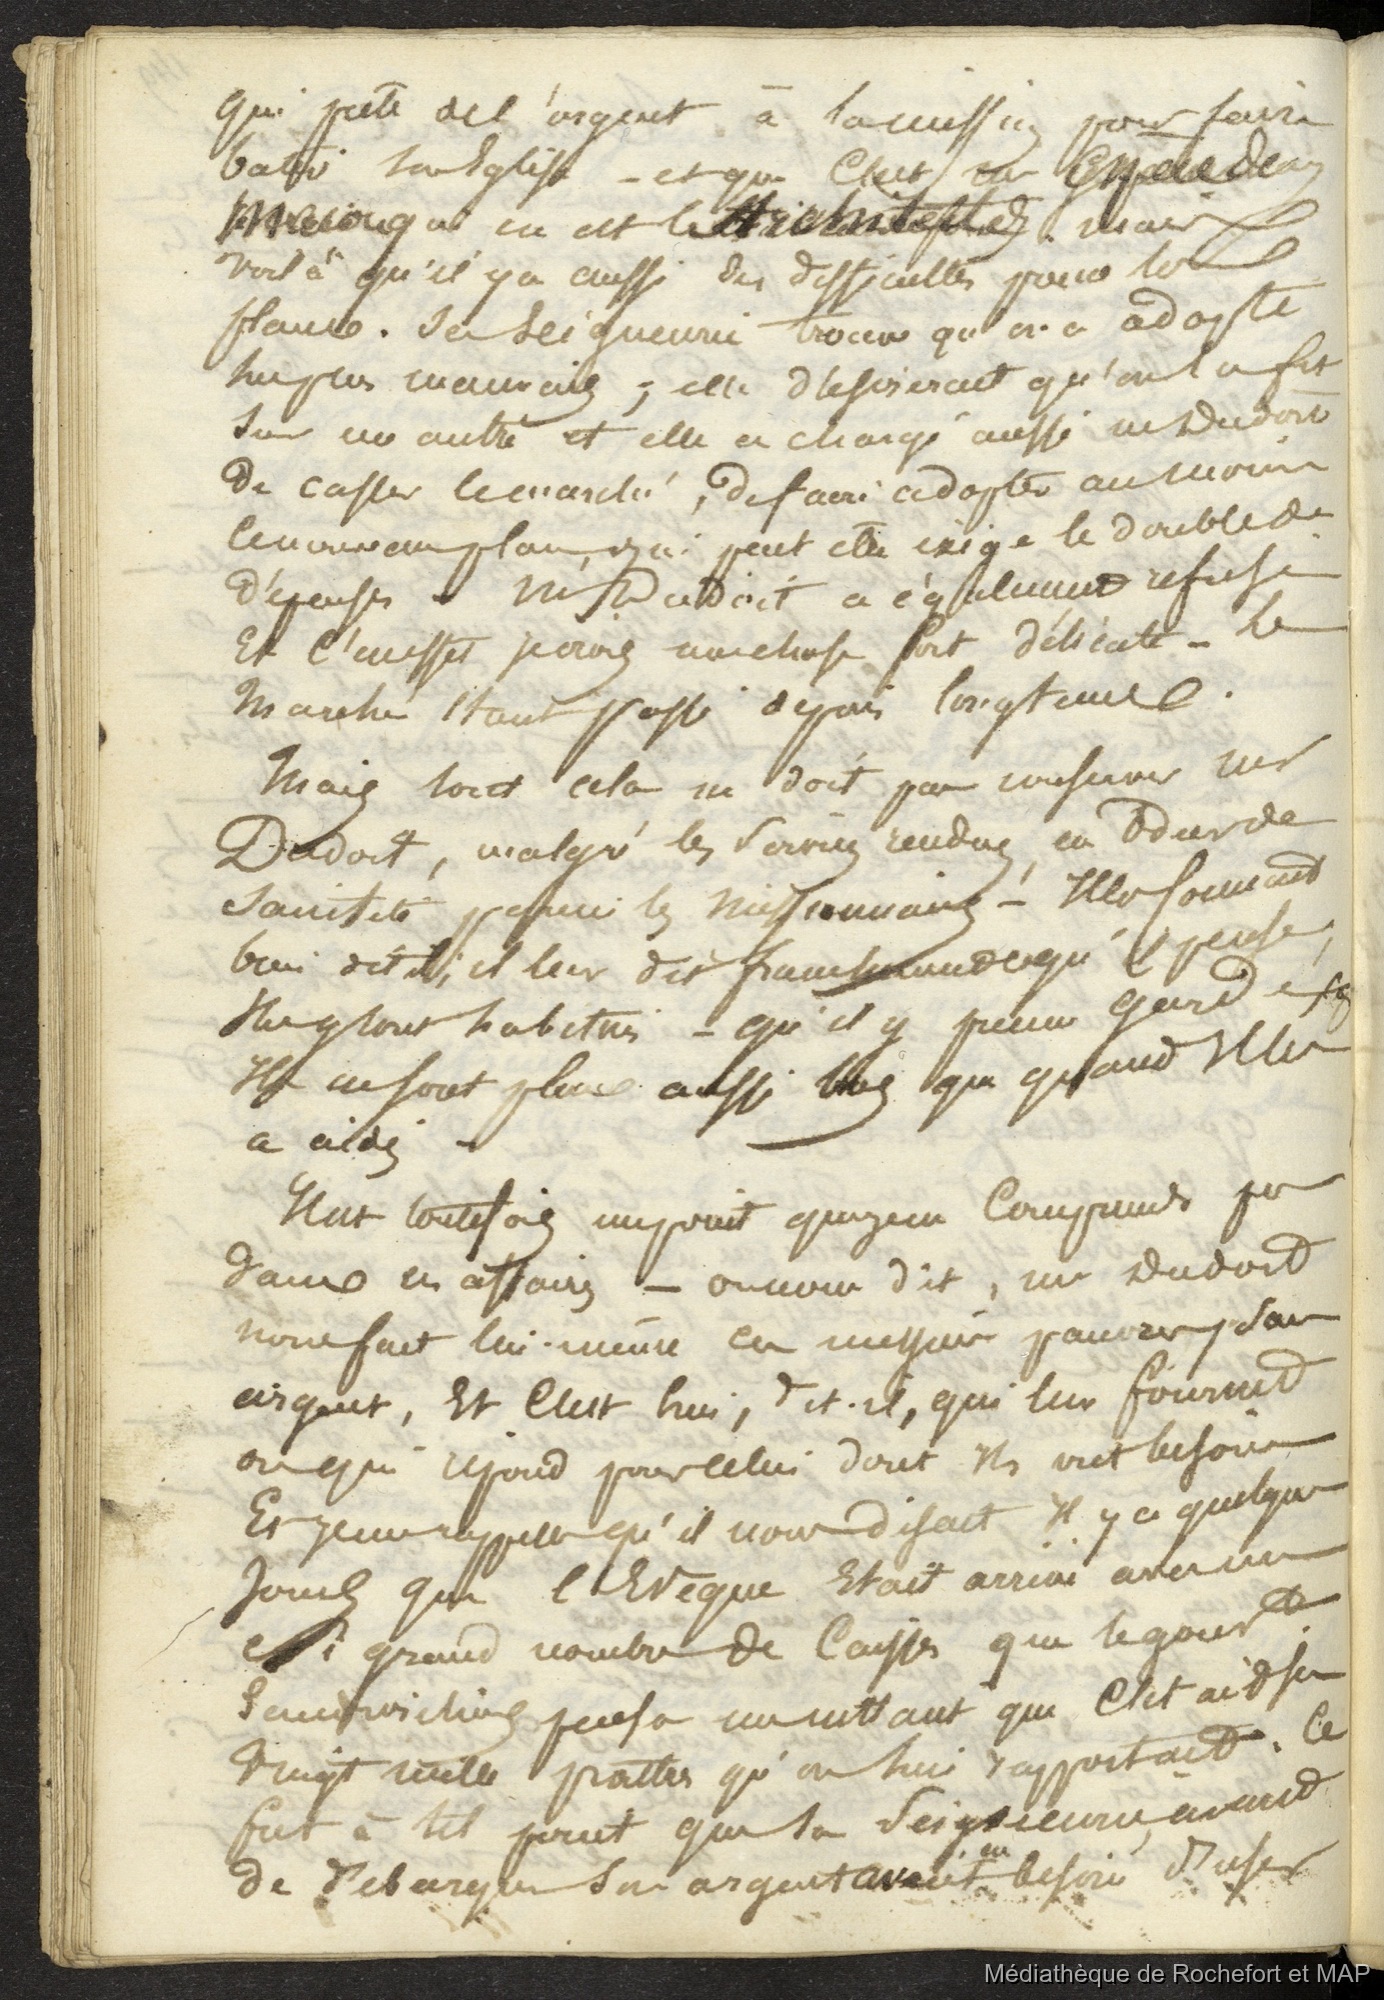 qui prete de l'argent à la mission pour faire
batir son Eglise - et que C'est un
qui en est l'Architecte. mais
voilà qu'il y a aussi des difficultés pour les
plans. Sa Seigneurie trouve qu'on a adopté
les plus mauvais ; elle désirerait qu'on la fit
sur un autre et elle a chargé aussi mr Dudoit
De casser le marché, de faire adopter au moins
le nouveau plan, qui peut etre exige le double de
dépenses - Mr Dudoit a également refusé
Et C'eusset parmi une chose fort délicate - le
Marché étant passé depuis longtemps.
Mais tout cela ne doit pas conserver mr
Dudoit, malgré les services rendus, en odeur de
Sainteté parmi les Missionnaires - Ils le soignent
bien dit il, il leur dit franchement ce qu'il pense,
Ils y sont habitués - qu'il y prenne garde
Ils ne sont plus aussi bas que quand Il les
a aidés -
Il est toutefois un point que je ne Comprends pas
dans ces affaires - on nous dit, mr Dudoit
nous fait lui-même ces messieurs pauvres, sans
argent, Et C'est lui, dit-il, qui leur fournit
ou qui répond pour celui dont Ils ont besoin
Et je me rappelle qu'il nous disait Il y a quelques
Jours que l'Evêque Etait arrivé avec un
si grand nombre de Caisses que le gouvt.
Sandwichien pensa un instant que C'etait
Vingt mille piastres qu'on lui rapportait. Ce
fut à tel point que sa Seigneurie, avant
de débarquer son argent avait en besoin d'user
Médiathèque de Rochefort et MAP